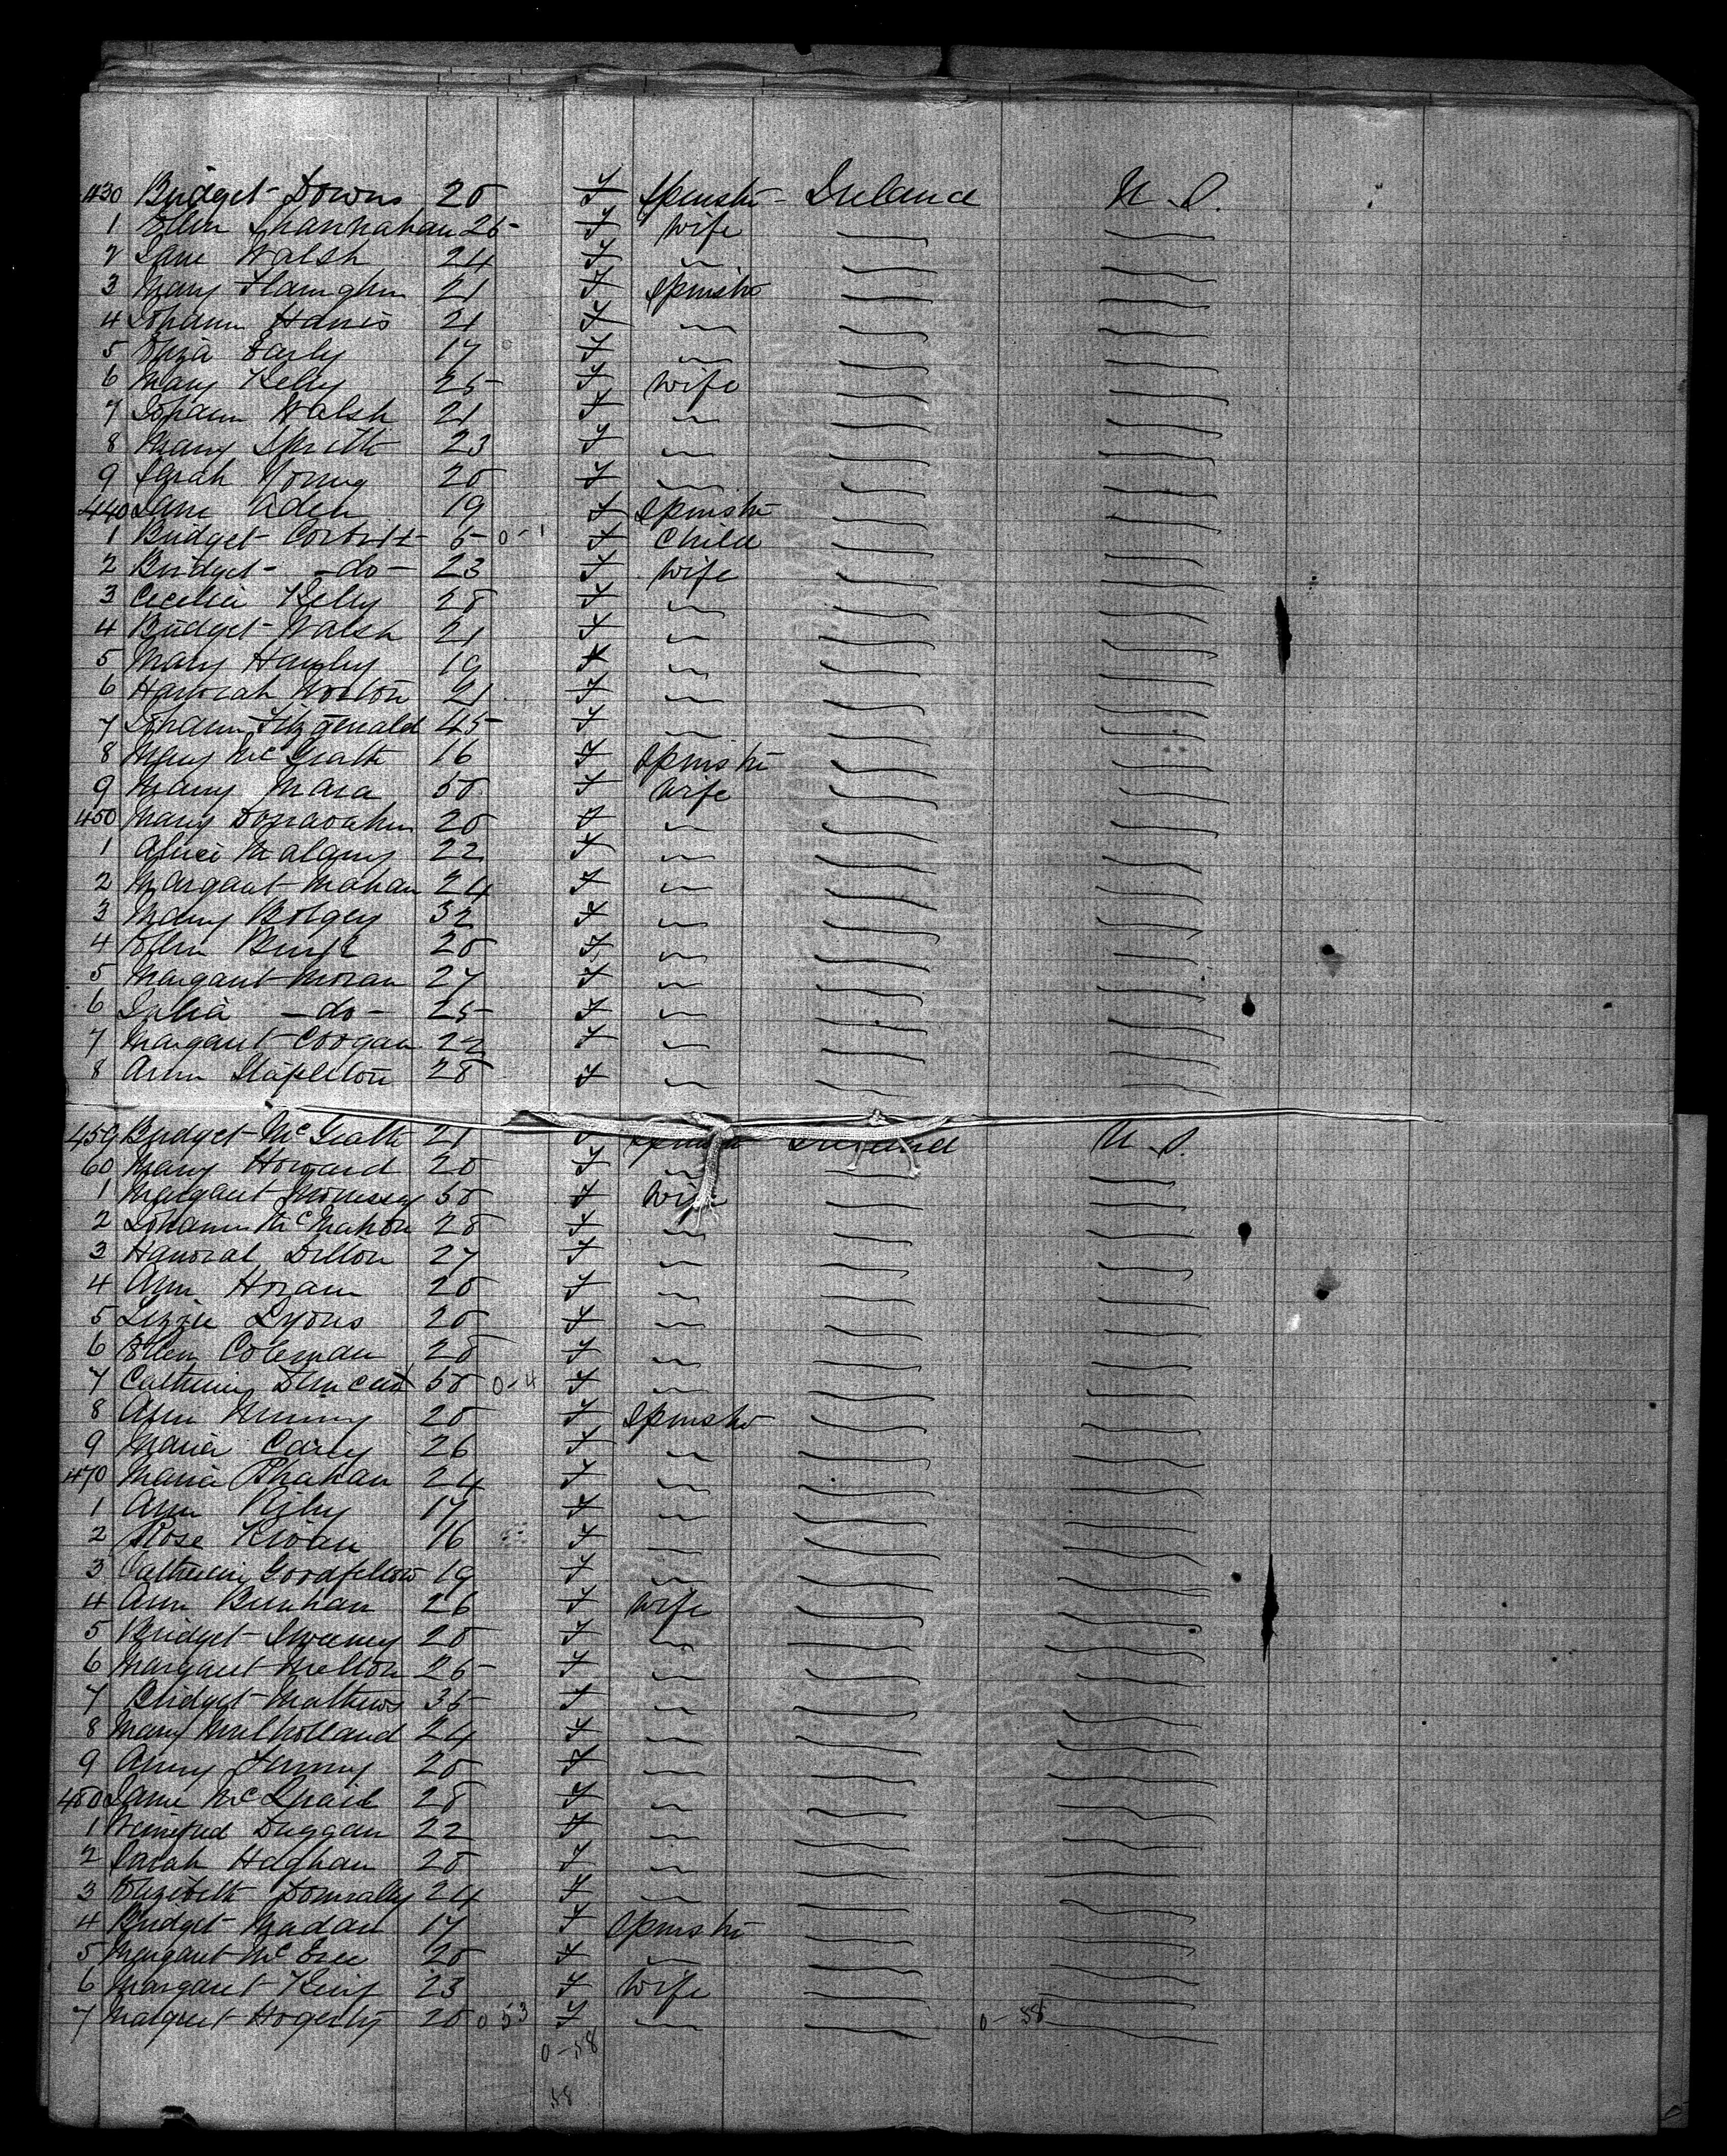 430 Bridget Downs 20 F Spinstr Ireland U.S.
1 Ellen Shannahan 25 F Wife
2 Jane Walsh 24 F
3 Mary Flanighen 21 F Spinstr
4 Johann Harris 21 F
5 Eliza Early 17 F
6 Mary Kelly 25 F Wife
7 Johann Walsh 21 F
8 Mary Smith 23 F
9 Sarah Young 20 F
440 Jane 19 F Spinstr
1 Bridget 5 0-1 F Child
2 Bridget -do- 23 F Wife
3 Cecelia Kelly 28 F
4 Bridget Walsh 21 F
5 Mary 19 F
6 Hanorah 21 F
7 Johann Fitzgerald 45 F
8 Mary McGrath 16 F Spinstr
9 Mary Mara 50 F Wife
450 Mary Donavahen 20 F
1 Alice 22 F
2 Margaret Mahan 24 F
3 Mary Bolgey 32 F
4 Ellen 20 F
5 Margaret Moran 27 F
6 Julia -do- 25 F
7 Margaret Coogan 22 F
8 Ann Stapleton 28 F
459 Bridget McGrath 21 F Ireland U.S.
60 Mary Howard 20 F
1 Margaret 50 F Wife
2 Johann McMahon 28 F
3 Hanorah Dillon 27 F
4 Ann Horam 20 F
5 Lizzie Lyons 20 F
6 Ellen Coleman 28 F
7 Catherine 50 0-4 F
8 Ann 20 F Spinstr
9 Maria Carey 26 F
470 Maria 24 F
1 Ann 17 F
2 Rose Kivan 16 F
3 Catherine Goodfellow 19 F
4 Ann 26 F Wife
5 Bridget Sweeney 20 F
6 Margaret Melton 25 F
7 Bridget Mathews 35 F
8 Mary Mulholland 24 F
9 Anny 20 F
480 Jane 28 F
1 Winefred Duggan 22 F
2 Sarah Haghan 20 F
3 Elizebeth Donnally 24 F
4 Bridget Madden 17 F Spinstr
5 Margaret 20 F
6 Margaret 23 F Wife
7 Margret Hogerty 20 0 53 F 0-58
0-58
58